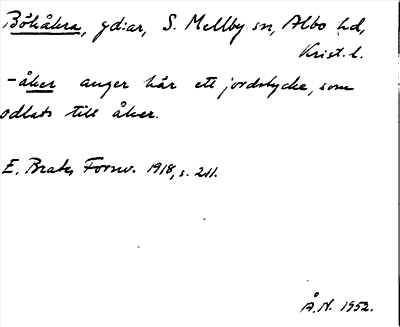 Bökåkra, ydiar, S. Mellby sn, Albo hd,
Krist. l.
-åker anger här ett jordstycke, som
odlats till åker.
E. Brate, Fornv. 1918, s. 211.
Å.N. 1952.